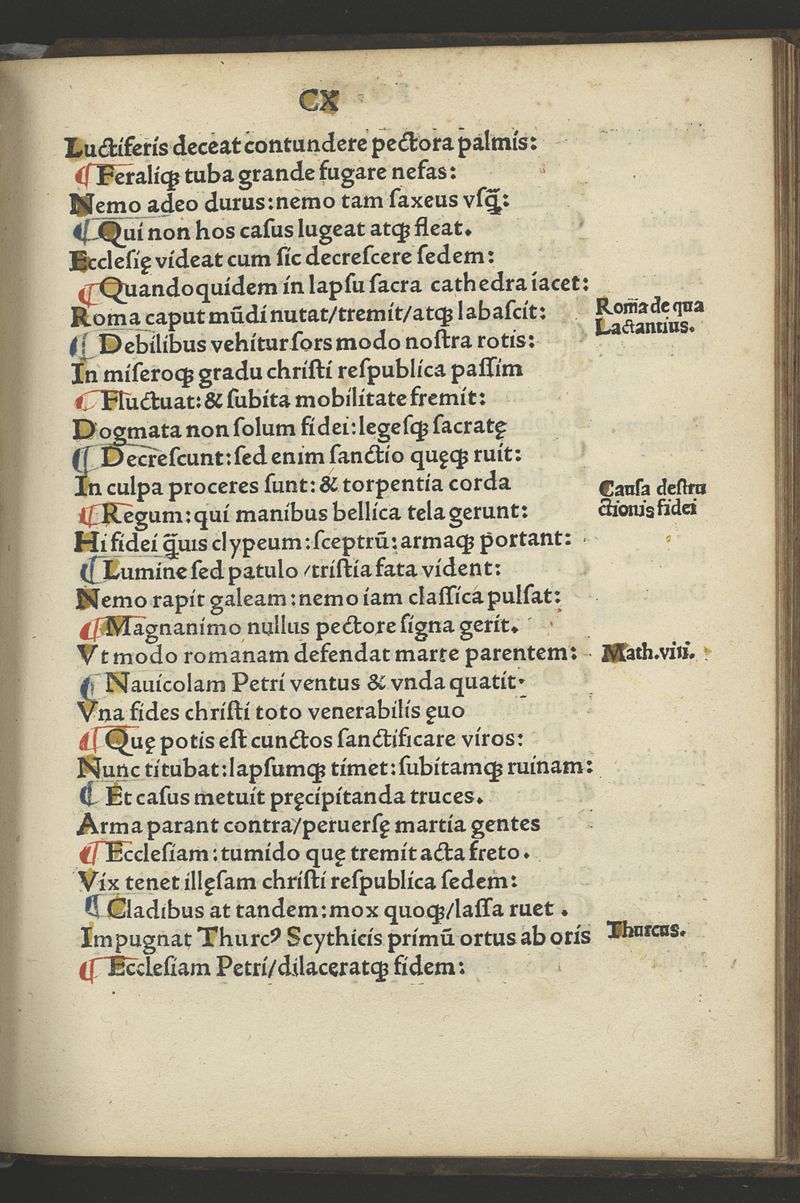 CX
Luctiferis deceat contundere pectora palmis:
¶ Feraliqꝫ tuba grande fugare nefas:
Nemo adeo durus:nemo tam ſaxeus vſq̃:
¶ Qui non hos caſus lugeat atqꝫ fleat.
Eccleſię videat cum ſic decreſcere ſedem:
¶ Quandoquidem in lapſu ſacra cathedra iacet:
Roma caput mũdi nutat/tremit/atqꝫ labaſcit:
Rom̃a de qua
Lactantius.
¶ Debilibus vehitur ſors modo noſtra rotis:
In miſeroqꝫ gradu chriſti reſpublica paſſim
¶ Fluctuat:& ſubita mobilitate fremit:
Dogmata non ſolum fidei:legeſqꝫ ſacratę
¶ Decreſcunt:ſed enim ſanctio quęqꝫ ruit:
In culpa proceres ſunt:& torpentia corda
Cauſa deſtru
ctionis fidei
¶ Regum:qui manibus bellica tela gerunt:
Hi fidei q̃uis clypeum:ſceptrũ:armaqꝫ portant:
¶ Lumine ſed patulo/triſtia fata vident:
Nemo rapit galeam:nemo iam claſſica pulſat:
¶ Magnanimo nullus pectore ſigna gerit.
Vt modo romanam defendat marte parentem:
Math.viii.
¶ Nauicolam Petri ventus & vnda quatit.
Vna fides chriſti toto venerabilis ęuo
¶ Quę potis eſt cunctos ſanctificare viros:
Nunc titubat:lapſumqꝫ timet:ſubitamqꝫ ruinam:
¶ Et caſus metuit pręcipitanda truces.
Arma parant contra/peruerſę martia gentes
¶ Eccleſiam:tumido quę tremit acta freto.
Vix tenet illęſam chriſti reſpublica ſedem:
¶ Cladibus at tandem:mox quoqꝫ/laſſa ruet.
Impugnat Thurcꝰ Scythicis primũ ortus ab oris
Thurcus.
¶ Eccleſiam Petri/dilaceratqꝫ fidem: